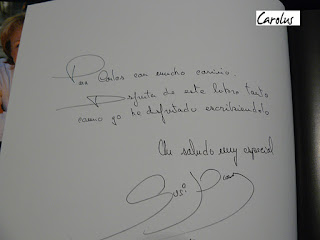 Carolus
Para Carlos con mucho cariño.
Disfruta de este libro tanto
como yo he disfrutado escribiendolo
Un saludo muy especial